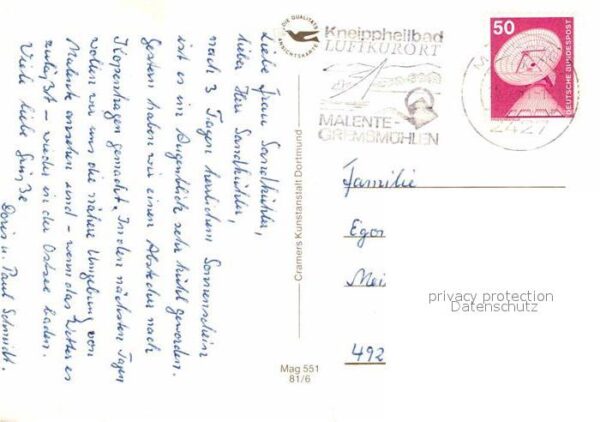 Liebe Frau Sandkühler,
lieber Herr Sandkühler,
nach 3 Tagen herrlichem Sonnenschein
ist es im Augenblick sehr kühl geworden.
Gestern haben wir einen Abstecher nach
Kopenhagen gemacht. In den nächsten Tagen
wollen wir uns die nähere Umgebung von
Malente ansehen und - wenn das Wetter es
zuläßt - wieder in der Ostsee baden.
Viele liebe Grüße
Doris u. Paul Schmidt.
DIE QUALITÄTS
ANSICHTSKARTE
Cramers Kunstanstalt Dortmund
Mag 551
81/6
Kneippheilbad
LUFTKURORT
MALENTE-
GREMSMÜHLEN
2427
50
DEUTSCHE BUNDESPOST
Familie
Egon
Mei
492
privacy protection
Datenschutz